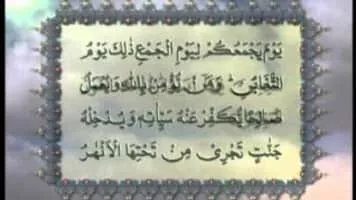 يَوْمَ يَجْمَعُكُمْ لِيَوْمِ الْجَمْعِ ذٰلِكَ يَوْمُ
التَّغَابُنِ ؕ وَمَنْ يُّؤْمِنْۢ بِاللّٰهِ وَيَعْمَلْ
صَالِحًا يُّكَفِّرْ عَنْهُ سَيِّاٰتِهٖ وَيُدْخِلْهُ
جَنّٰتٍ تَجْرِىْ مِنْ تَحْتِهَا الْاَنْهٰرُ